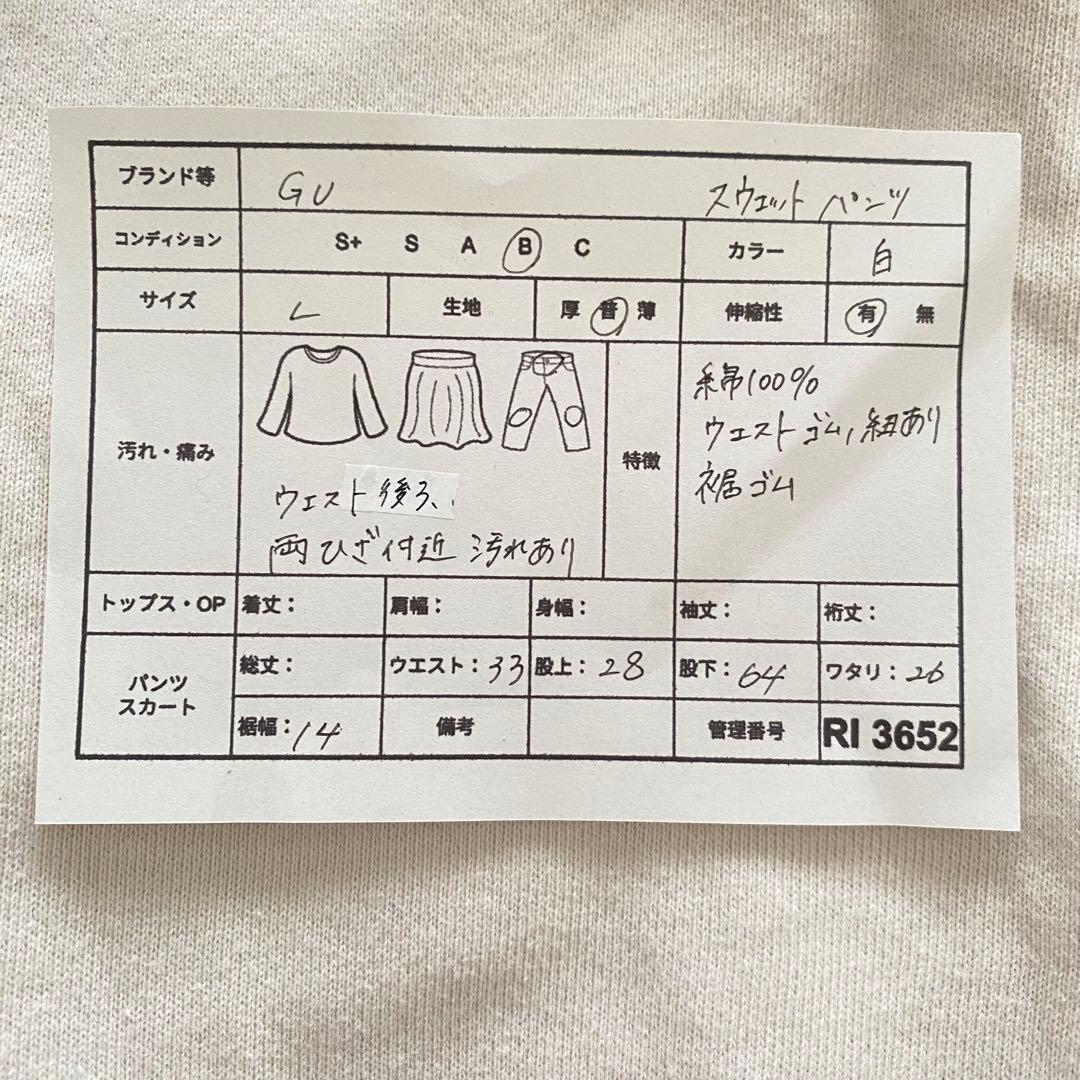 ブランド等 GU スウェットパンツ
コンディション S+ S A B C カラー 白
サイズ L 生地 厚 普 薄 伸縮性 有 無
汚れ・痛み
ウェスト後ろ、
両ひざ付近 汚れあり
特徴
綿100%
ウエストゴム,紐あり
裾ゴム
トップス・OP 着丈: 肩幅: 身幅: 袖丈: 裄丈:
パンツ
スカート
総丈: ウエスト:33 股上:28 股下:64 ワタリ:26
裾幅:14 備考 管理番号 RI 3652